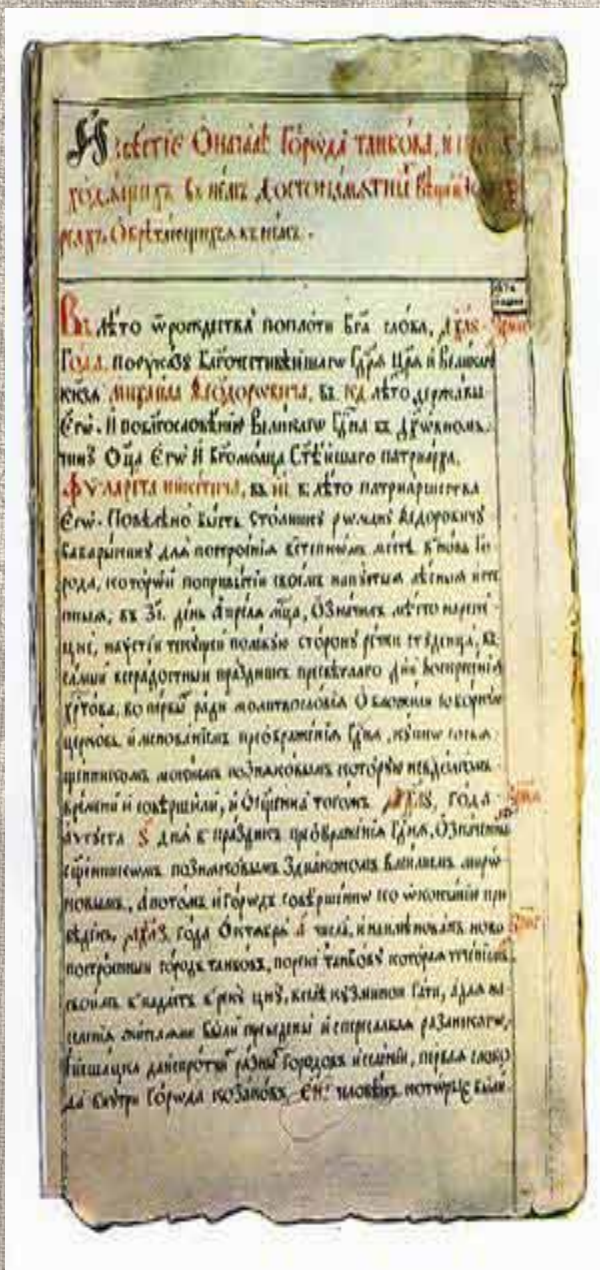 Извѣстїе Ѡначалѣ Горѡда танбова, и
ходѧщихъ въ нѣмъ достопамѧтны вещи и
реѧхъ. Обрѣтающихсѧ къ нѣмъ.
Въ лѣто ѿ рождества поплоти Бга слова, ҂аχлѕ
Года. поѹказꙋ Благочестивѣйшагѡ Гдрѧ Црѧ и Великагѡ
кнѧзѧ Михаила Ѳеодоровича, въ кд лѣто державы
Егѡ. и поблгословѣнїю Великагѡ Гдна въ дхѡвномъ
чинꙋ Оца Егѡ и Бгомолца Стѣйшаго патрїарха,
Фѵларета никитича, въ лѣто патрїаршества
Егѡ. Повѣлѣно бысть столникꙋ рѡманꙋ Ѳедоровичꙋ
Бабарыкинꙋ длѧ построенїѧ встепномъ мѣстѣ внов Го
рода, который поприбытїи своемъ напꙋстыѧ лѣсныѧ исте
пныѧ, въ зі. день Апрелѧ мца, Означилъ мѣсто нареч
цнѣ, наꙋстїи текущей полѣвꙋю сторонꙋ рѣчки стꙋденца, въ
самый всерадостный праздникъ пресвѣтлаго днѧ воскресенїѧ
хртова, во первы ради молитвословїѧ Обложили соборнꙋю
церковь, именованїемъ преображенїѧ Гднѧ, кꙋпнѡ
щенникомъ позънѧковымъ которꙋю невдолгомъ
времени и совершили, и Ѡсщенна тогожъ ҂аχлѕ, года
аѵгꙋста ѕ днѧ в праздникъ преображенїѧ Гднѧ, Означенны
сщенникомъ позънѧковымъ Здїакономъ Василїемъ мирѡ
новымъ, Апотомъ и горѡдъ совѣршеннѡ ко ѡкончанїю при
вѣденъ, ҂аχлз года Октѧбрѧ а числа, инаименованъ ново
построенный городъ танбовъ, порекѣ танбовꙋ которая тѣченїемъ
своимъ впадаетъ врекꙋ цнꙋ, близъ кꙋзминой Гати, Адлѧ на
селенїѧ жителѧми были резанскагѡ,
разны городовъ иселенїи, первая слобо
да внꙋтри Горѡда козаковъ человѣкъ которые были